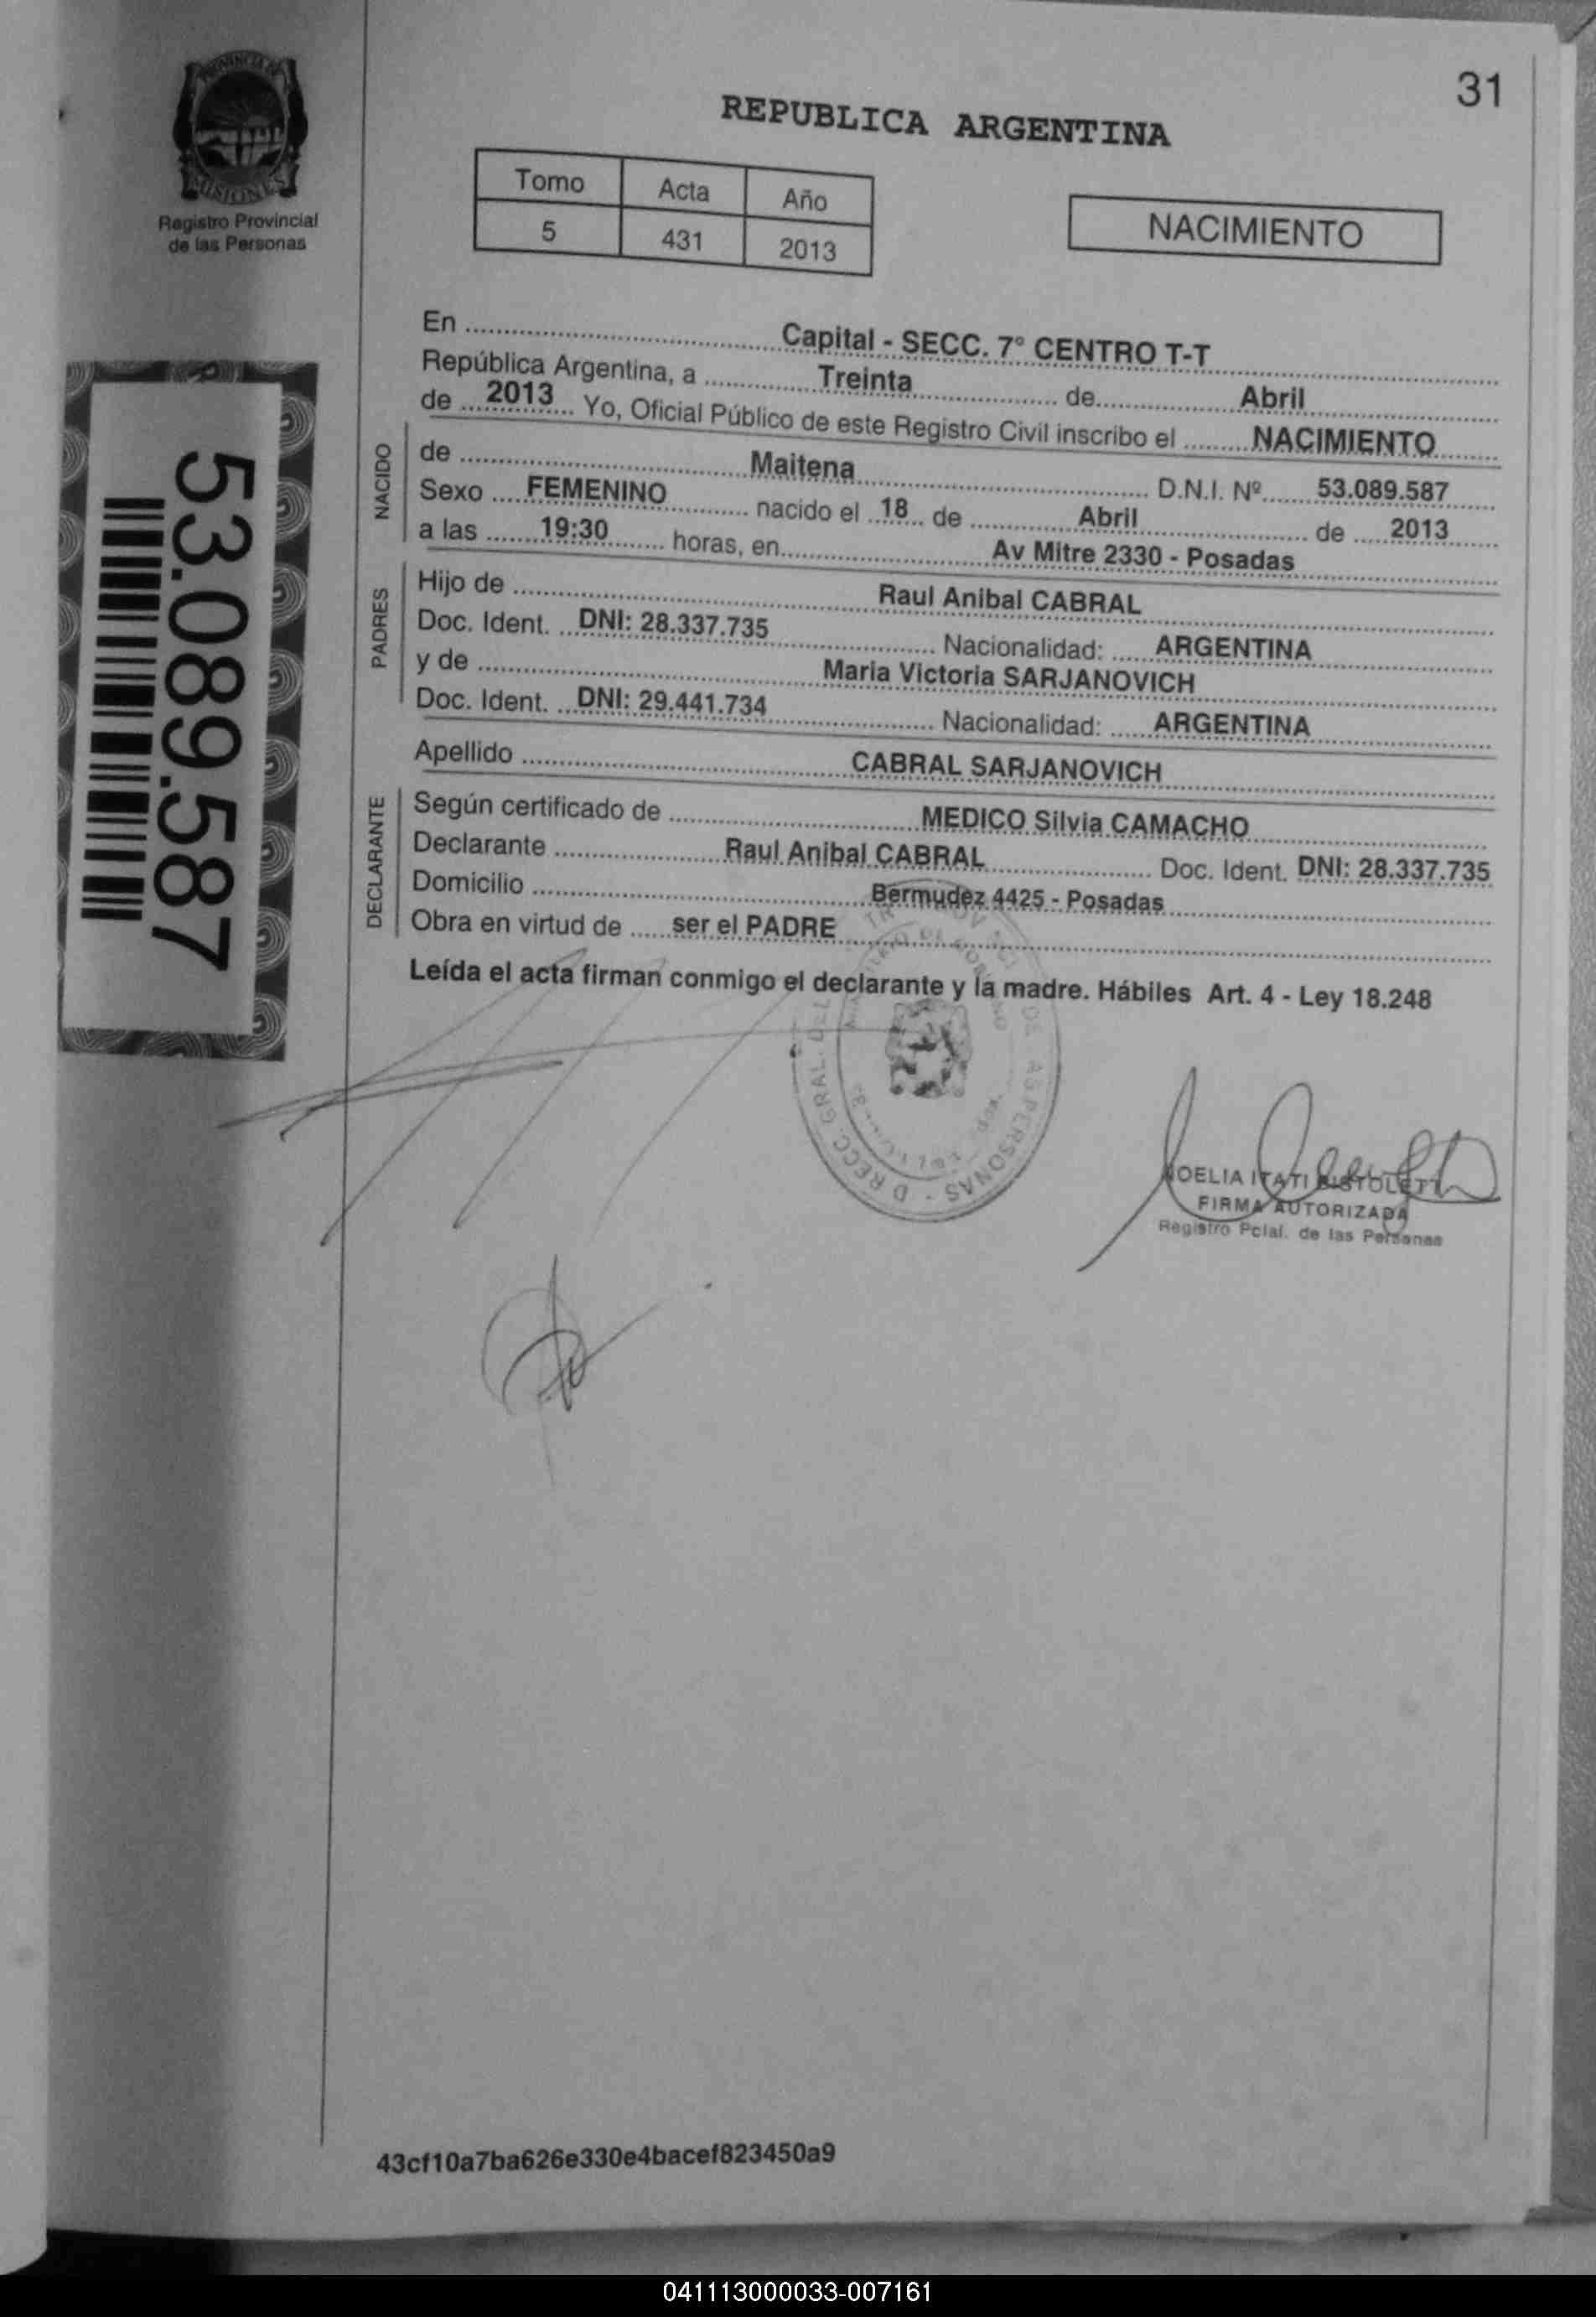 31
PROVINCIA DE
MISIONES
Registro Provincial
de las Personas
REPUBLICA ARGENTINA
Tomo Acta Año
5 431 2013
NACIMIENTO
53.089.587
En Capital - SECC. 7° CENTRO T-T
República Argentina, a Treinta de Abril
de 2013 Yo, Oficial Público de este Registro Civil inscribo el NACIMIENTO
NACIDO
de Maitena D.N.I. Nº 53.089.587
Sexo FEMENINO nacido el 18 de Abril de 2013
a las 19:30 horas, en Av Mitre 2330 - Posadas
PADRES
Hijo de Raul Anibal CABRAL
Doc. Ident. DNI: 28.337.735 Nacionalidad: ARGENTINA
y de Maria Victoria SARJANOVICH
Doc. Ident. DNI: 29.441.734 Nacionalidad: ARGENTINA
Apellido CABRAL SARJANOVICH
DECLARANTE
Según certificado de MEDICO Silvia CAMACHO
Declarante Raul Anibal CABRAL Doc. Ident. DNI: 28.337.735
Domicilio Bermudez 4425 - Posadas
Obra en virtud de ser el PADRE
Leída el acta firman conmigo el declarante y la madre. Hábiles Art. 4 - Ley 18.248
NOELIA ITATI
FIRMA AUTORIZADA
Registro Pcial. de las Personas
43cf10a7ba626e330e4bacef823450a9
041113000033-007161